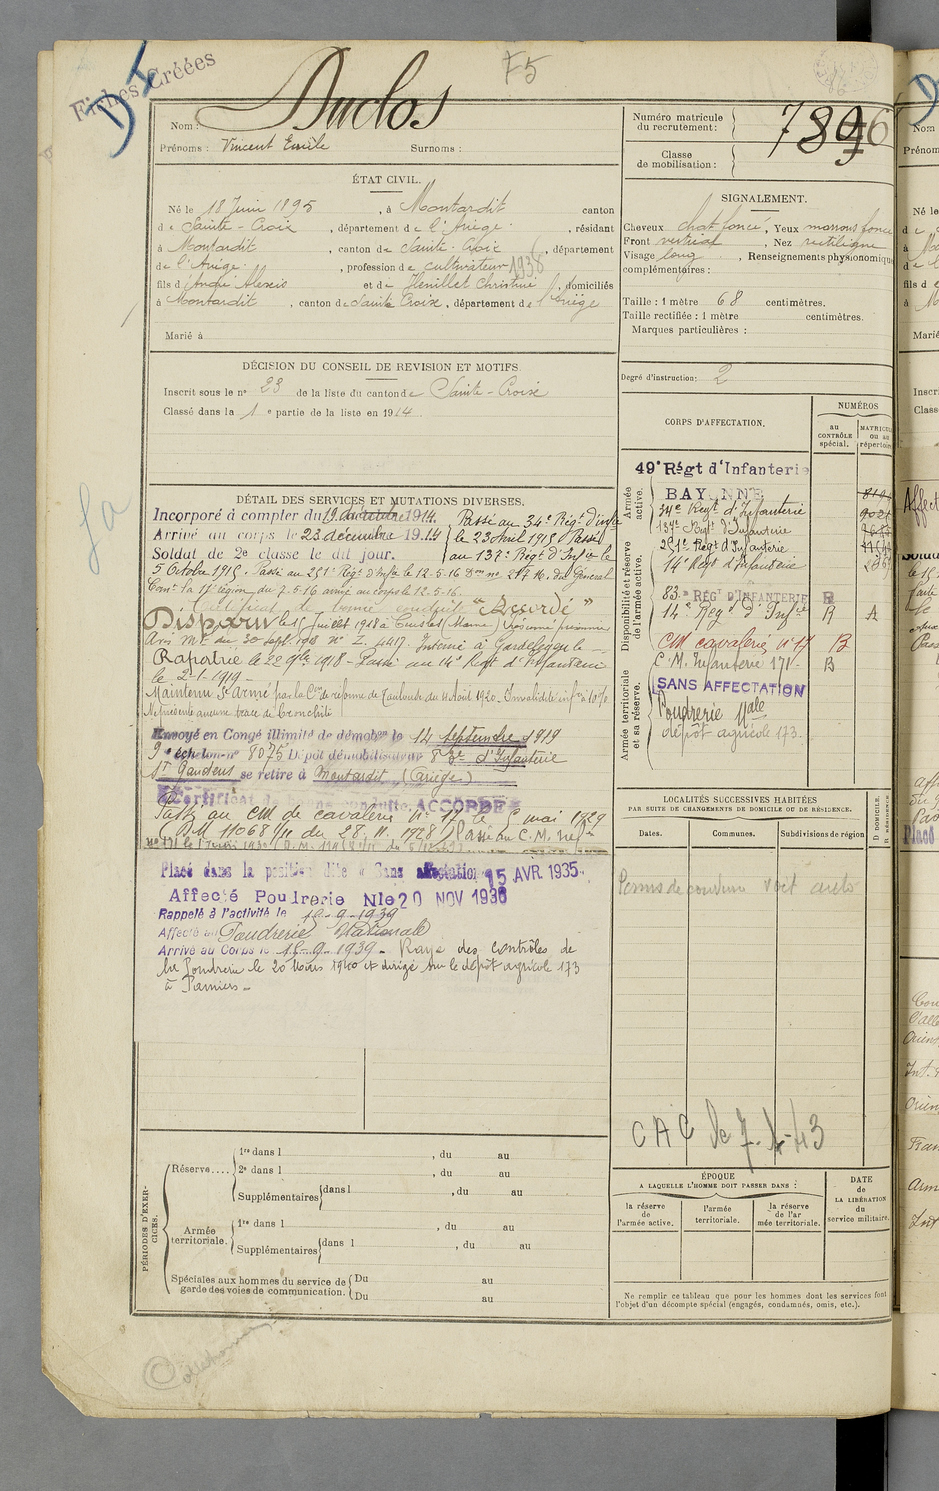 Fiches Créées
D
F5
Nom : Duclos
Prénoms : Vincent Emile Surnoms :
Numéro matricule du recrutement :
Classe de mobilisation :
ÉTAT CIVIL.
Né le 18 Juin 1895, à Montardit canton
de Sainte-Croix, département de l'Ariège, résidant
à Montardit, canton de Sainte-Croix, département
de l'Ariège, profession de cultivateur 1938
fils d'André Alexis et de Henillet Christine, domiciliés
à Montardit, canton de Sainte Croix, département de l'Ariège
Marié à
SIGNALEMENT.
Cheveux chat. foncé, Yeux marrons foncé
Front vertical, Nez rectiligne
Visage long, Renseignements physionomiques
complémentaires :
Taille : 1 mètre 68 centimètres.
Taille rectifiée : 1 mètre centimètres.
Marques particulières :
DÉCISION DU CONSEIL DE REVISION ET MOTIFS.
Inscrit sous le n° 23 de la liste du canton de Sainte-Croix
Classé dans la 1e partie de la liste en 1914.
Degré d'instruction : 2
DÉTAIL DES SERVICES ET MUTATIONS DIVERSES.
Incorporé à compter du 19 1914.
Arrivé au corps le 23 décembre 1914
Soldat de 2e classe le dit jour.
Passé au 34e Régt d'Infie
le 23 Avril 1915 Passé
au 137e Régt d'Infie le
5 Octobre 1915. Passé au 251e Régt d'Infie le 12-5-16 du Général
Comt la 17e région du 7.5.16 arrivé au corps le 12-5-16.
Certificat de bonne conduite "Accordé"
Disparu le 15 Juillet 1918 à (Marne) présumé prisonnier
Avis Mel du 30 sept. 1918 N° Interné à Gardelegen
Rapatrié le 22 1918 - Passé au 14e Régt d'Infanterie
le 2-1-1919 -
Maintenu Sce Armé par la Con de réforme de Toulouse du 11 Août 1920. Invalidité infre à 10%
Ne présente aucune trace de bronchite
Envoyé en Congé illimité de démobon le 14 septembre 1919
9e échelon n° 8075 Dépôt démobilisateur 83e d'Infanterie
St Gaudens se retire à Montardit (Ariège)
Certificat de bonne conduite ACCORDÉ
Passé au CM de cavalerie N° 17 le 1e mai 1929
(DM 11068 du 28.11.1928) Passé au C.M. Infie
Placé dans la position dite « Sans affectation » 15 AVR. 1935
Affecté Poudrerie Nle 20 NOV 1938
Rappelé à l'activité le 12-9-1939
Affecté à Poudrerie Nationale
Arrivé au Corps le 12-9-1939 - Rayé des Contrôles de
la Poudrerie le 20 Mars 1940 et dirigé sur le dépôt agricole 173
à Pamiers -
CORPS D'AFFECTATION.
NUMÉROS
au CONTRÔLE spécial.
MATRICULE ou au répertoire
Armée active.
Disponibilité et réserve de l'armée active.
Armée territoriale et sa réserve.
49e Régt d'Infanterie
BAYONNE
34e Régt d'Infanterie
137e Régt d'Infanterie
251e Régt d'Infanterie
14e Régt d'Infanterie
83e RÉGt D'INFANTERIE R
14e Régt d'Infie R A
CM cavalerie n° 17 B
C.M. Infanterie 171 - B
SANS AFFECTATION
Poudrerie Nale
dépôt agricole 173.
LOCALITÉS SUCCESSIVES HABITÉES
PAR SUITE DE CHANGEMENTS DE DOMICILE OU DE RÉSIDENCE.
Dates. Communes. Subdivisions de région
D DOMICILE. R RÉSIDENCE
Permis de conduire voit auto
CAC le 7-4-43
PÉRIODES D'EXERCICES.
Réserve....
1re dans l , du au
2e dans l , du au
Supplémentaires dans l , du au
Armée territoriale.
1re dans l , du au
Supplémentaires dans l , du au
Spéciales aux hommes du service de garde des voies de communication.
Du au
Du au
ÉPOQUE
A LAQUELLE L'HOMME DOIT PASSER DANS :
la réserve de l'armée active.
l'armée territoriale.
la réserve de l'armée territoriale.
DATE de LA LIBÉRATION du service militaire.
Ne remplir ce tableau que pour les hommes dont les services font
l'objet d'un décompte spécial (engagés, condamnés, omis, etc.).